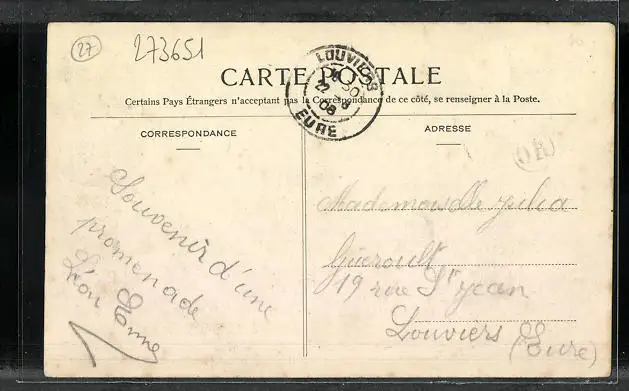 27
273651
LOUVIERS
EURE
CARTE POSTALE
Certains Pays Étrangers n'acceptant pas la Correspondance de ce côté, se renseigner à la Poste.
CORRESPONDANCE
Souvenir d'une
promenade
Léon
ADRESSE
OR
Mademoiselle Julia
Guéroult
19 rue St Jean
Louviers
(Eure)